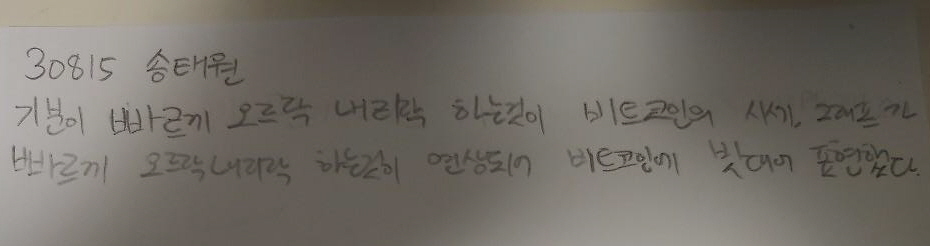 30815 송태원
기분이 빠르게 오르락 내리락 하는것이 비트코인의 시세 그래프가
빠르게 오르락내리락 하는것이 연상되어 비트코인에 빗대어 표현했다.